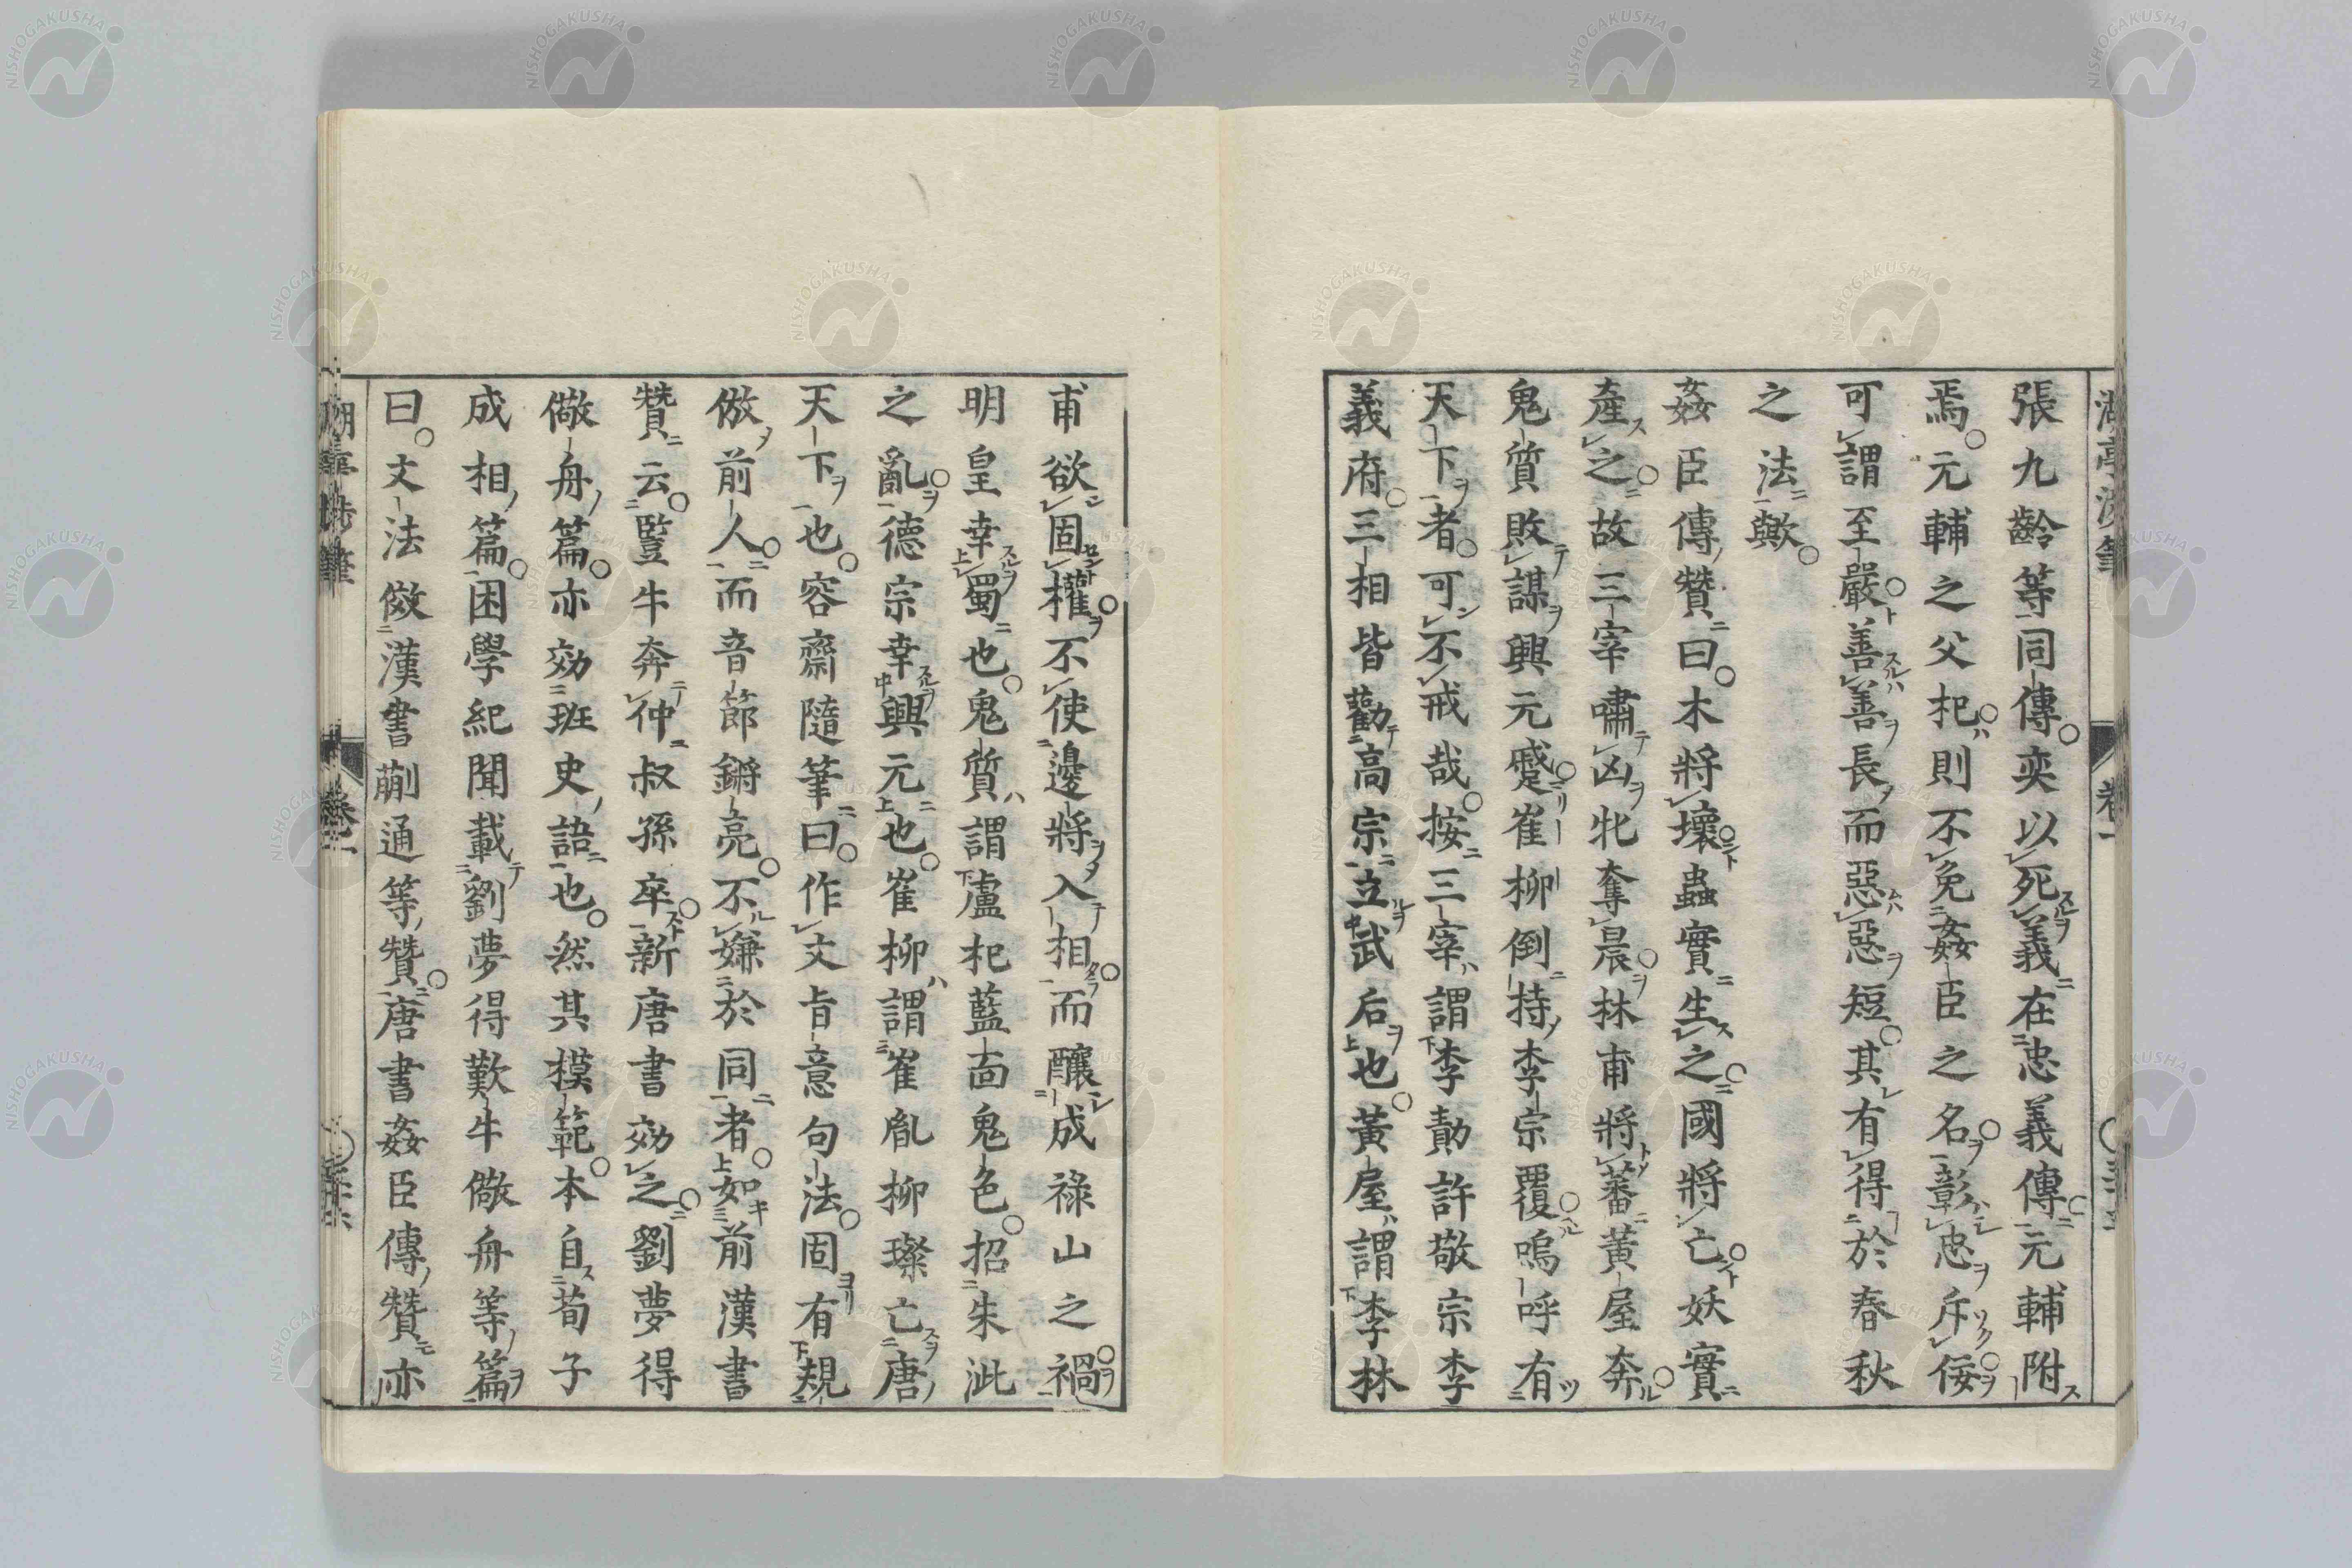 張九齡等同傳奕以死義在忠義傳元輔附
焉元輔之父杞則不免姦臣之名彰忠斥佞
可謂至嚴善善長而惡惡短其有得於春秋
之法歟
姦臣傳贊曰木將壞蟲實生之國將亡妖實
產之故三宰嘯凶牝奪晨林甫將蕃黃屋奔
鬼質敗謀興元蹙崔柳倒持李宗覆嗚呼有
天下者可不戒哉按三宰謂李勣許敬宗李
義府三相皆勸高宗立武后也黃屋謂李林
甫欲固權不使邊將入相而釀成祿山之禍
明皇幸蜀也鬼質謂盧杞藍面鬼色招朱泚
之亂德宗幸興元也崔柳謂崔胤柳璨亡唐
天下也容齋隨筆曰作文旨意句法固有規
倣前人而音節鏘亮不嫌於同者如前漢書
贊云豎牛奔仲叔孫卒新唐書效之劉夢得
儆舟篇亦効班史語也然其模範本自荀子
成相篇困學紀聞載劉夢得歎牛儆舟等篇
曰文法倣漢書蒯通等贊唐書姦臣傳贊亦